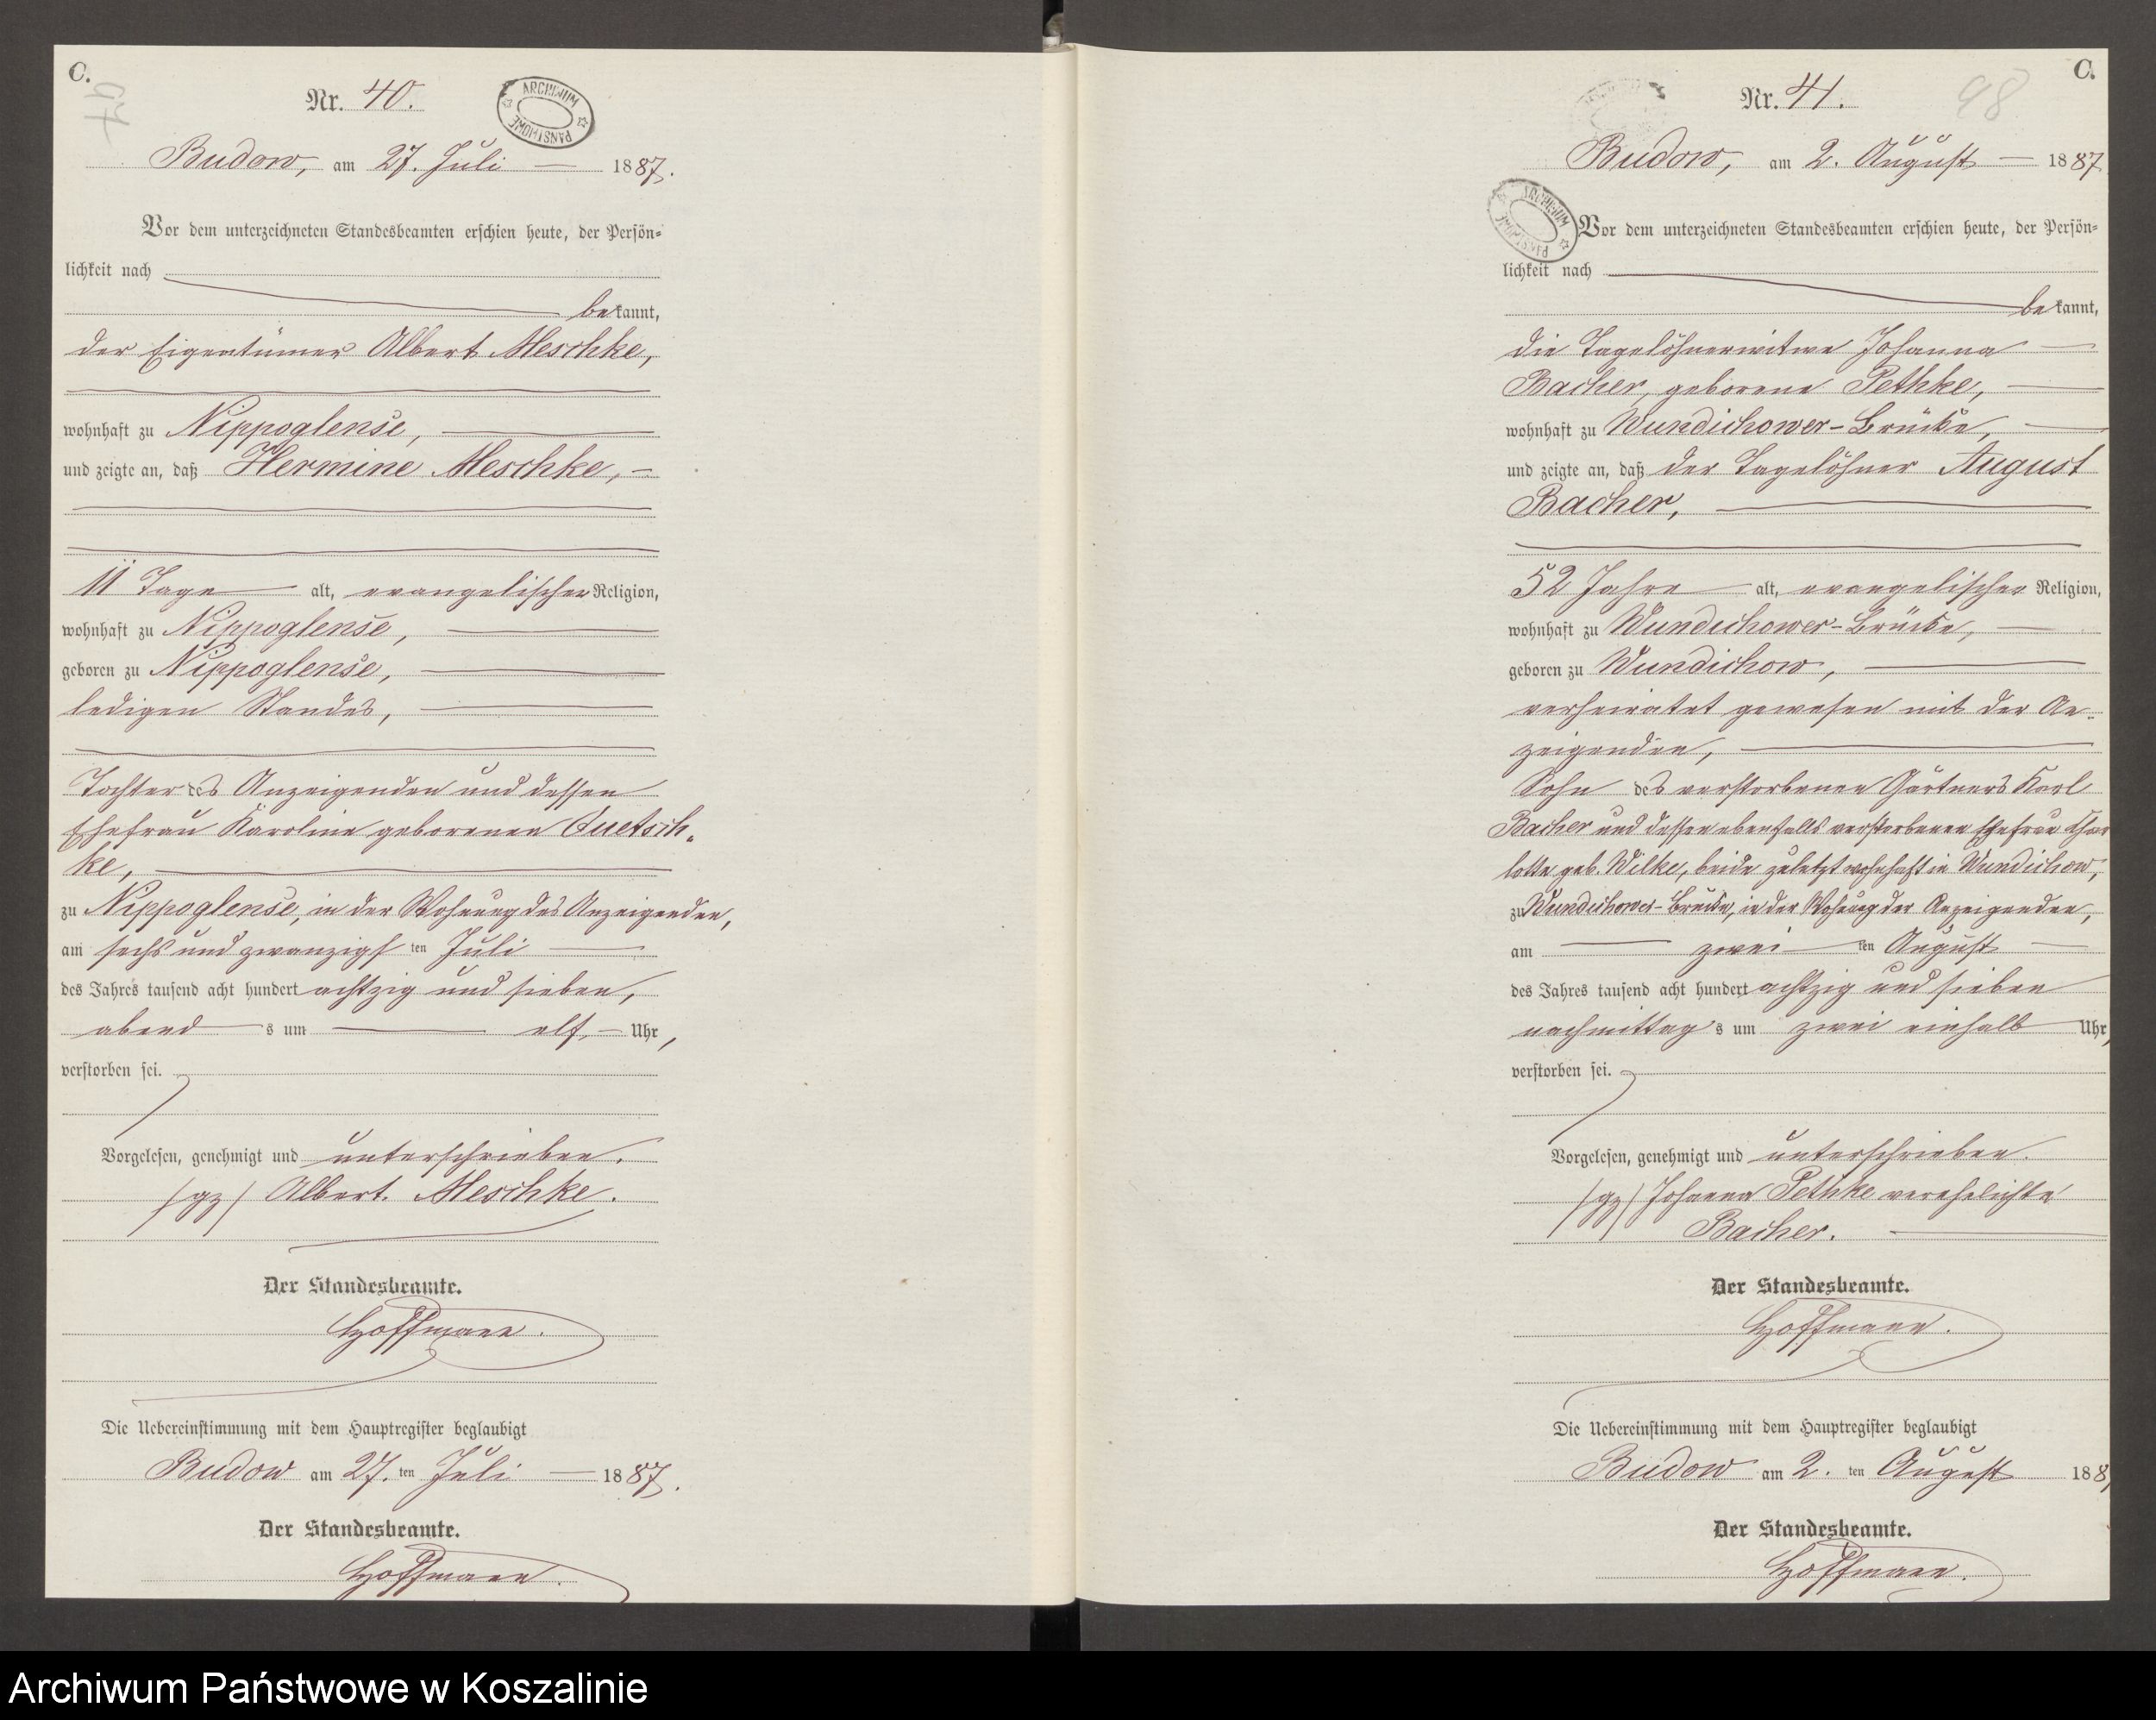 C.
97
Nr. 40.
ARCHIWUM PAŃSTWOWE
Budow, am 27. Juli 1887.
Vor dem unterzeichneten Standesbeamten erschien heute, der Persön-
lichkeit nach
bekannt,
der Eigentümer Albert Meschke,
wohnhaft zu Nippoglense,
und zeigte an, daß Hermine Meschke,
11 Tage alt, evangelischer Religion,
wohnhaft zu Nippoglense,
geboren zu Nippoglense,
ledigen Standes,
Tochter des Anzeigenden und dessen
Ehefrau Karoline geborenen Quetsch-
ke,
zu Nippoglense, in der Wohnung des Anzeigenden,
am sechs und zwanzigsten Juli
des Jahres tausend acht hundert achtzig und sieben,
abends um elf Uhr,
verstorben sei.
Vorgelesen, genehmigt und unterschrieben.
/gz/ Albert Meschke.
Der Standesbeamte.
Hoffmann.
Die Uebereinstimmung mit dem Hauptregister beglaubigt
Budow am 27. ten Juli 1887.
Der Standesbeamte.
Hoffmann.
C.
98
Nr. 41.
Budow, am 2. August 1887
ARCHIWUM PAŃSTWOWE
Vor dem unterzeichneten Standesbeamten erschien heute, der Persön-
lichkeit nach
bekannt,
die Tagelöhnerwitwe Johanna
Bacher, geborene Pethke,
wohnhaft zu Wundichower-Brücke,
und zeigte an, daß der Tagelöhner August
Bacher,
52 Jahre alt, evangelischer Religion,
wohnhaft zu Wundichower-Brücke,
geboren zu Wundichow,
verheiratet gewesen mit der An-
zeigenden,
Sohn des verstorbenen Gärtners Karl
Bacher und dessen ebenfalls verstorbenen Ehefrau Char
lotte geb. Wilke, beide zuletzt wohnhaft in Wundichow,
zu Wundichower-Brücke, in der Wohnung der Anzeigenden,
am zweiten August
des Jahres tausend acht hundert achtzig und sieben
nachmittags um zwei einhalb Uhr,
verstorben sei.
Vorgelesen, genehmigt und unterschrieben.
/gz/ Johanna Pethke verehelichte
Bacher.
Der Standesbeamte.
Hoffmann.
Die Uebereinstimmung mit dem Hauptregister beglaubigt
Budow am 2. ten August 188
Der Standesbeamte.
Hoffmann.
Archiwum Państwowe w Koszalinie